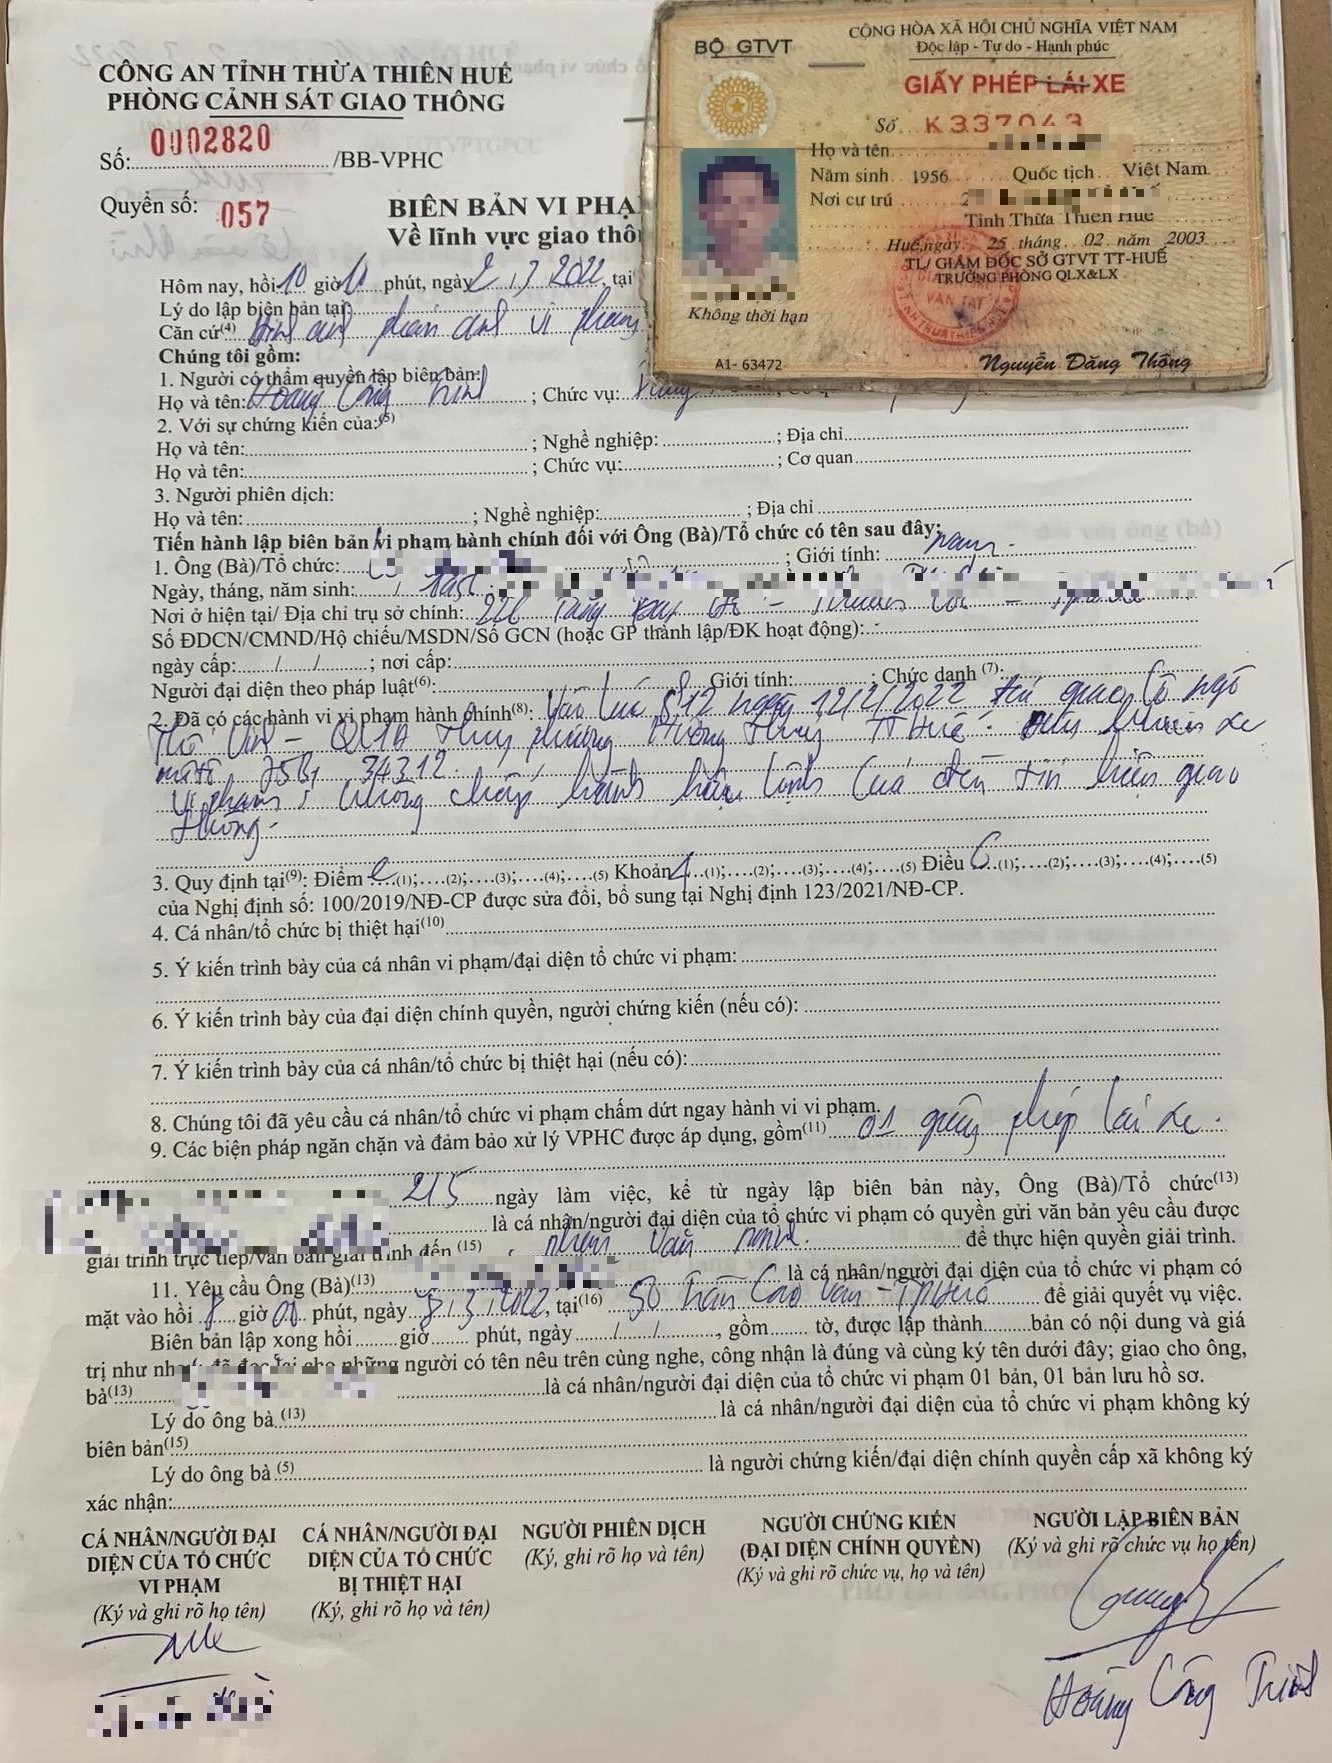 CÔNG AN TỈNH THỪA THIÊN HUẾ
PHÒNG CẢNH SÁT GIAO THÔNG
Số: 0002820 /BB-VPHC
Quyển số: 057
BIÊN BẢN VI PHẠ
Về lĩnh vực giao thô
BỘ GTVT
CỘNG HÒA XÃ HỘI CHỦ NGHĨA VIỆT NAM
Độc lập - Tự do - Hạnh phúc
GIẤY PHÉP LÁI XE
Số K337043
Họ và tên
Năm sinh 1956 Quốc tịch Việt Nam
Nơi cư trú
Tỉnh Thừa Thiên Huế
Huế, ngày 25 tháng 02 năm 2003
TL/ GIÁM ĐỐC SỞ GTVT TT-HUẾ
TRƯỞNG PHÒNG QLX&LX
Không thời hạn
A1- 63472
Nguyễn Đăng Thông
Hôm nay, hồi 10 giờ phút, ngày 2/3/2022, tại
Lý do lập biên bản tại
Căn cứ(4) hình ảnh phản ánh vi phạm
Chúng tôi gồm:
1. Người có thẩm quyền lập biên bản:
Họ và tên: Hoàng Công Trình ; Chức vụ:
2. Với sự chứng kiến của:(5)
Họ và tên: ; Nghề nghiệp: ; Địa chỉ
Họ và tên: ; Chức vụ: ; Cơ quan
3. Người phiên dịch:
Họ và tên: ; Nghề nghiệp: ; Địa chỉ
Tiến hành lập biên bản vi phạm hành chính đối với Ông (Bà)/Tổ chức có tên sau đây:
1. Ông (Bà)/Tổ chức: ; Giới tính: nam
Ngày, tháng, năm sinh:
Nơi ở hiện tại/ Địa chỉ trụ sở chính:
Số ĐDCN/CMND/Hộ chiếu/MSDN/Số GCN (hoặc GP thành lập/ĐK hoạt động):
ngày cấp: / / ; nơi cấp:
Người đại diện theo pháp luật(6): Giới tính: ; Chức danh (7):
2. Đã có các hành vi vi phạm hành chính(8): Vào lúc 8h12 ngày 12/2/2022 tại giao lộ ngõ
QL1A Thủy Phương Hương Thủy TT Huế. điều khiển xe
mô tô 75B1 34312.
vi phạm: không chấp hành hiệu lệnh của đèn tín hiệu giao
thông.
3. Quy định tại(9): Điểm e (1);….(2);….(3);….(4);….(5) Khoản 4 (1);….(2);….(3);….(4);….(5) Điều 6 (1);….(2);….(3);….(4);….(5)
của Nghị định số: 100/2019/NĐ-CP được sửa đổi, bổ sung tại Nghị định 123/2021/NĐ-CP.
4. Cá nhân/tổ chức bị thiệt hại(10)
5. Ý kiến trình bày của cá nhân vi phạm/đại diện tổ chức vi phạm:
6. Ý kiến trình bày của đại diện chính quyền, người chứng kiến (nếu có):
7. Ý kiến trình bày của cá nhân/tổ chức bị thiệt hại (nếu có):
8. Chúng tôi đã yêu cầu cá nhân/tổ chức vi phạm chấm dứt ngay hành vi vi phạm.
9. Các biện pháp ngăn chặn và đảm bảo xử lý VPHC được áp dụng, gồm(11) 01 giấy phép lái xe.
2/5 ngày làm việc, kể từ ngày lập biên bản này, Ông (Bà)/Tổ chức(13)
là cá nhân/người đại diện của tổ chức vi phạm có quyền gửi văn bản yêu cầu được
giải trình trực tiếp/văn bản giải trình đến (15) để thực hiện quyền giải trình.
11. Yêu cầu Ông (Bà)(13) là cá nhân/người đại diện của tổ chức vi phạm có
mặt vào hồi 8 giờ 00 phút, ngày 8/3/2022, tại(16) 50 Trần Cao Vân - TP Huế để giải quyết vụ việc.
Biên bản lập xong hồi giờ phút, ngày / / , gồm tờ, được lập thành bản có nội dung và giá
trị như nhau; đã đọc lại cho những người có tên nêu trên cùng nghe, công nhận là đúng và cùng ký tên dưới đây; giao cho ông,
bà(13) là cá nhân/người đại diện của tổ chức vi phạm 01 bản, 01 bản lưu hồ sơ.
Lý do ông bà (13) là cá nhân/người đại diện của tổ chức vi phạm không ký
biên bản(15)
Lý do ông bà (5) là người chứng kiến/đại diện chính quyền cấp xã không ký
xác nhận:
CÁ NHÂN/NGƯỜI ĐẠI DIỆN CỦA TỔ CHỨC VI PHẠM
(Ký và ghi rõ họ tên)
CÁ NHÂN/NGƯỜI ĐẠI DIỆN CỦA TỔ CHỨC BỊ THIỆT HẠI
(Ký, ghi rõ họ và tên)
NGƯỜI PHIÊN DỊCH
(Ký, ghi rõ họ và tên)
NGƯỜI CHỨNG KIẾN
(ĐẠI DIỆN CHÍNH QUYỀN)
(Ký và ghi rõ chức vụ, họ và tên)
NGƯỜI LẬP BIÊN BẢN
(Ký và ghi rõ chức vụ họ tên)
Hoàng Công Trình